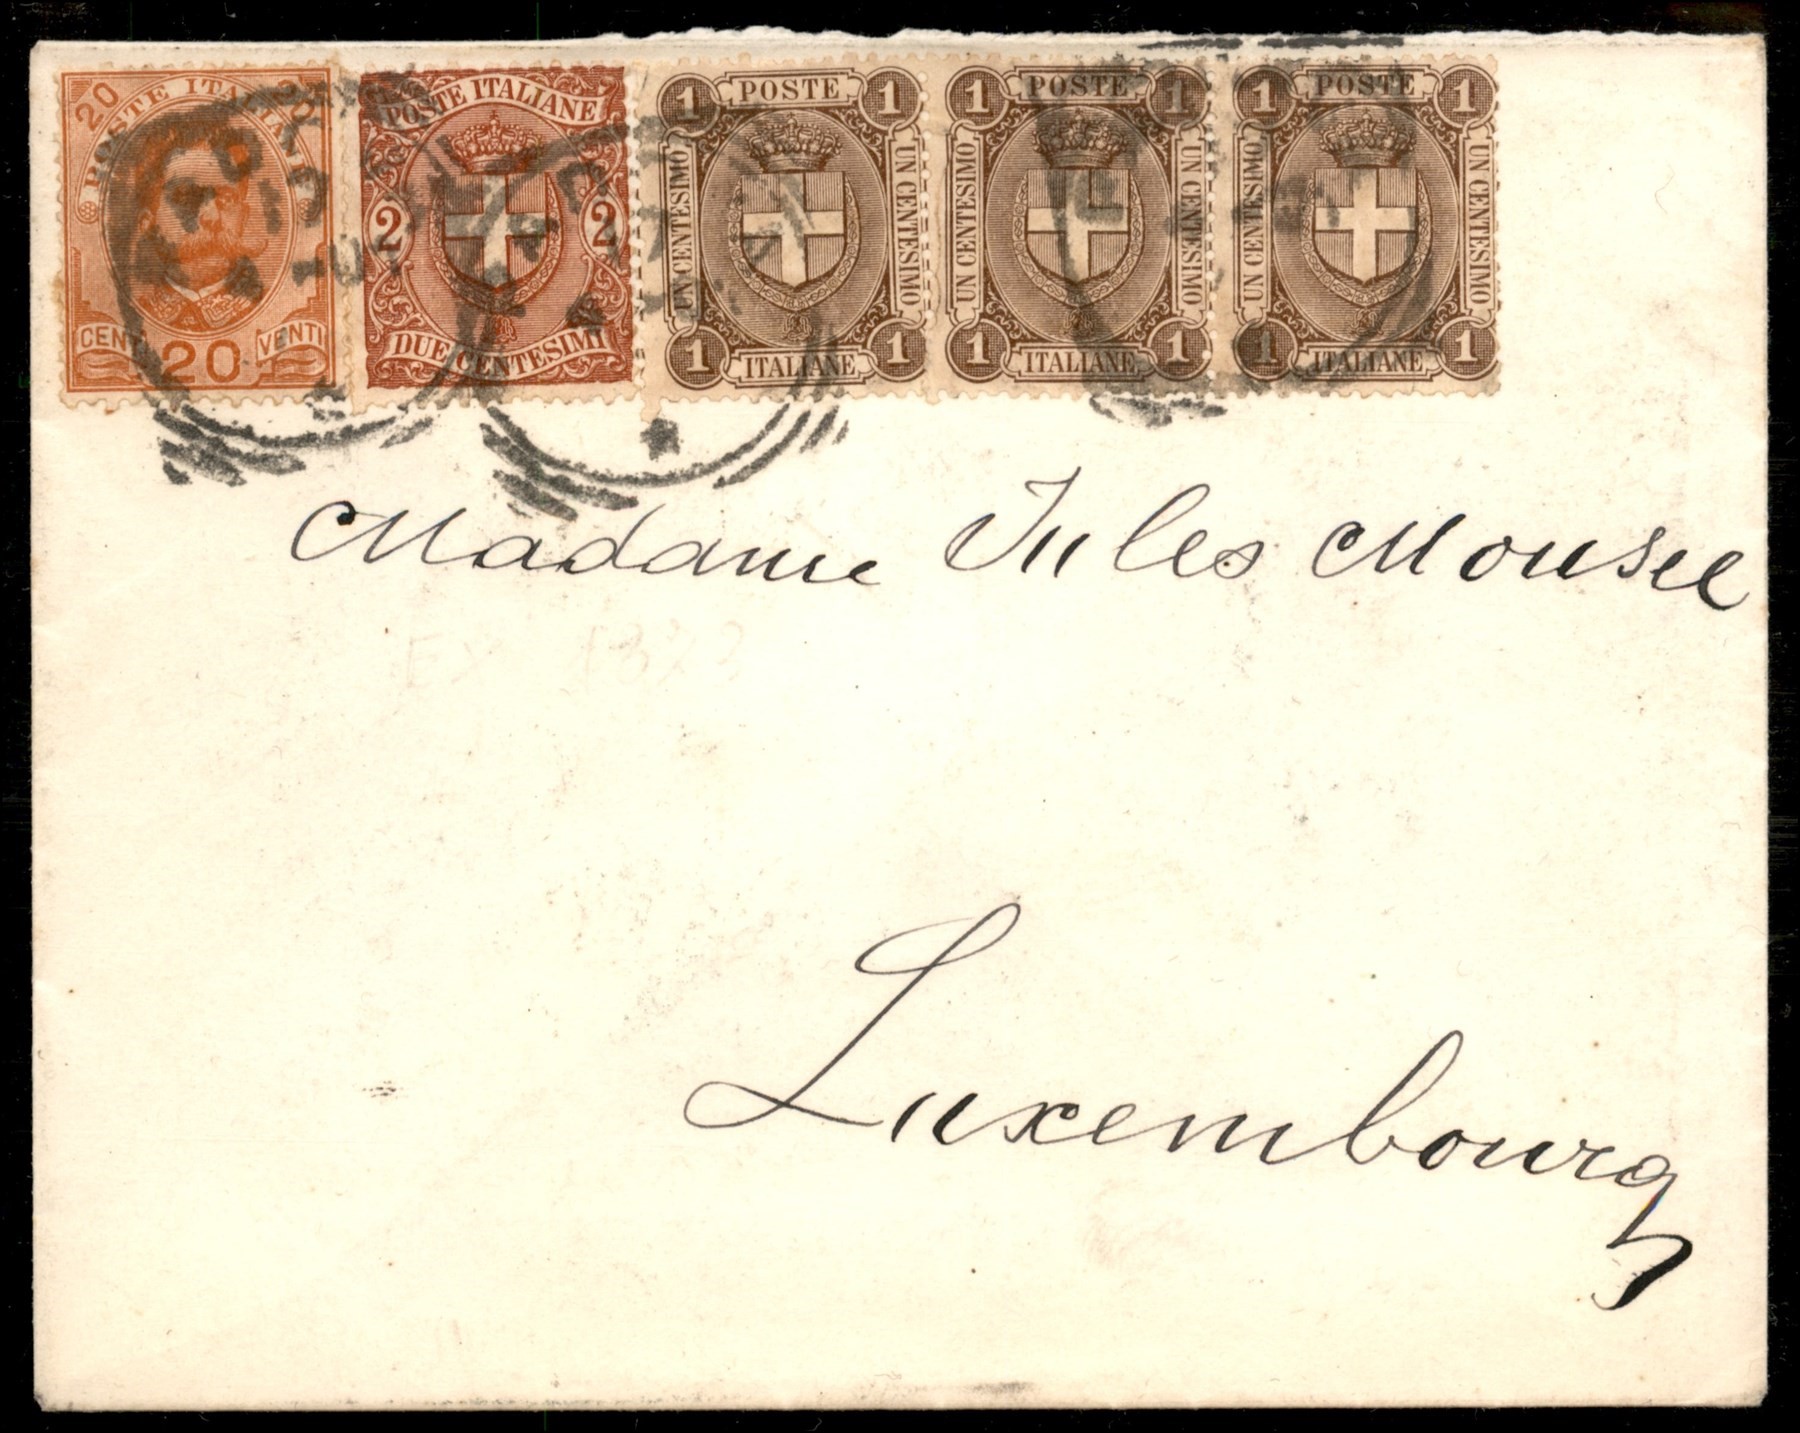 20 POSTE ITALIANE 20
CENT. 20 VENTI
POSTE ITALIANE
2 2
DUE CENTESIMI
1 POSTE 1
UN CENTESIMO UN CENTESIMO
1 ITALIANE 1
1 POSTE 1
UN CENTESIMO UN CENTESIMO
1 ITALIANE 1
1 POSTE 1
UN CENTESIMO UN CENTESIMO
1 ITALIANE 1
Madame Jules Mousel
Luxembourg